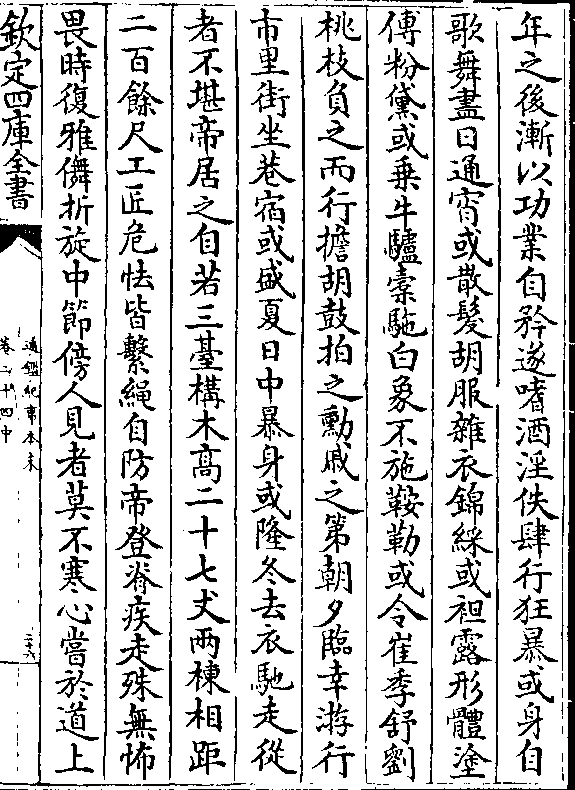 年之後漸以功業自矜遂嗜酒淫佚肆行狂暴或身自
歌舞盡日通宵或散髮胡服雜衣錦綵或袒露形體塗
傅粉黛或乗牛驢橐駞白象不施鞍勒或令崔季舒劉
桃枝負之而行擔胡鼓拍之勲戚之第朝夕臨幸游行
市里街坐巷宿或盛夏日中暴身或隆冬去衣馳走從
者不堪帝居之自若三臺構木髙二十七丈兩棟相距
二百餘尺工匠危怯皆繫䋲自防帝登脊疾走殊無怖
畏時復雅儛折旋中節傍人見者莫不寒心嘗於道上
欽定四庫全書
通鑑紀事本末
卷二十四中
二十六